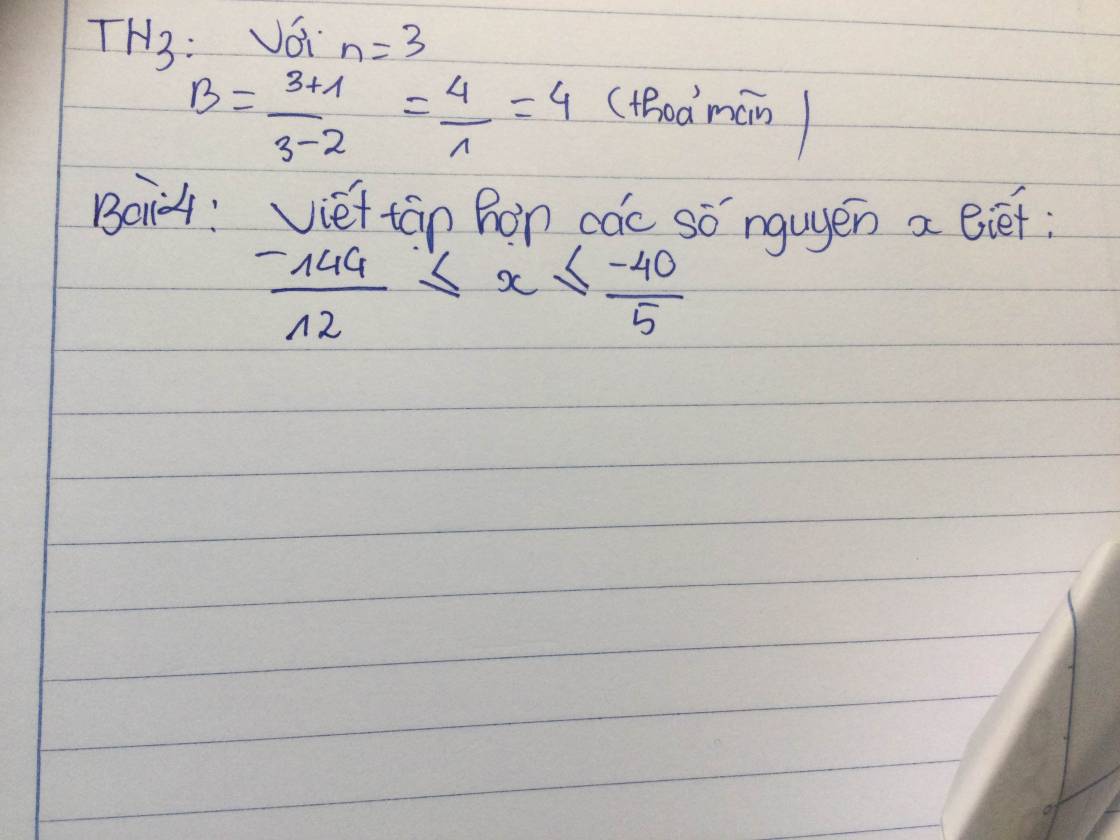 TH3: Với n = 3
B = \frac{3+1}{3-2} = \frac{4}{1} = 4 (thoả mãn)
Bài 4: Viết tập hợp các số nguyên x biết:
\frac{-144}{12} ≤ x ≤ \frac{-40}{5}